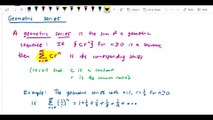 Geometric series
A geometric series is the sum of a geometric
sequence : If {Cr^n} for n≥0 is a sequence
then ∑ Cr^n is its corresponding series
n=0
(recall that c is a constant
r is its common ratio)
Example: The geometric series with c=1, r=1/2 for n≥0
is ∑ (1/2)^n = 1+1/2+1/4+1/8+....